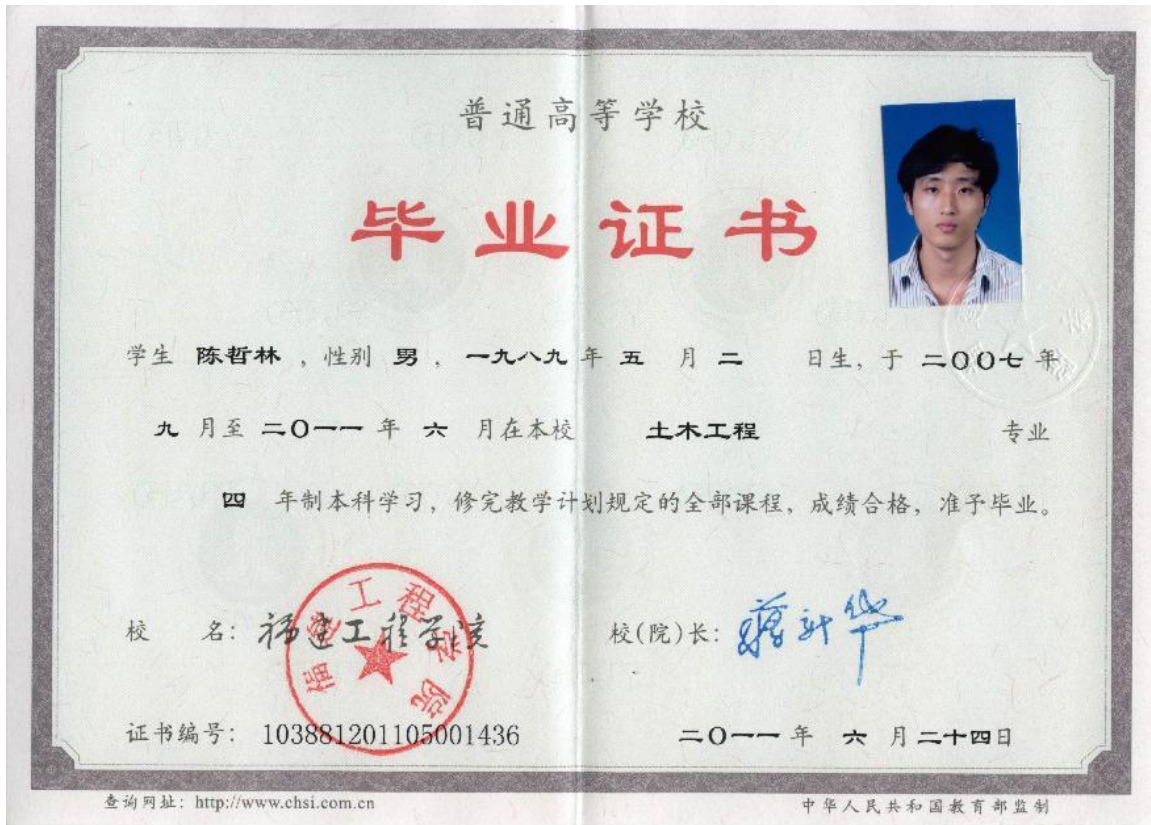 普通高等学校
毕业证书
学生 陈哲林 ，性别 男 ，一九八九 年 五 月 二 日生，于 二〇〇七 年
九 月至 二〇一一 年 六 月在本校 土木工程 专业
四 年制本科学习，修完教学计划规定的全部课程，成绩合格，准予毕业。
校 名：福建工程学院
福建工程学院
校(院)长：蒋新华
证书编号：103881201105001436
二〇一一 年 六 月 二十四日
查询网址：http://www.chsi.com.cn
中华人民共和国教育部监制